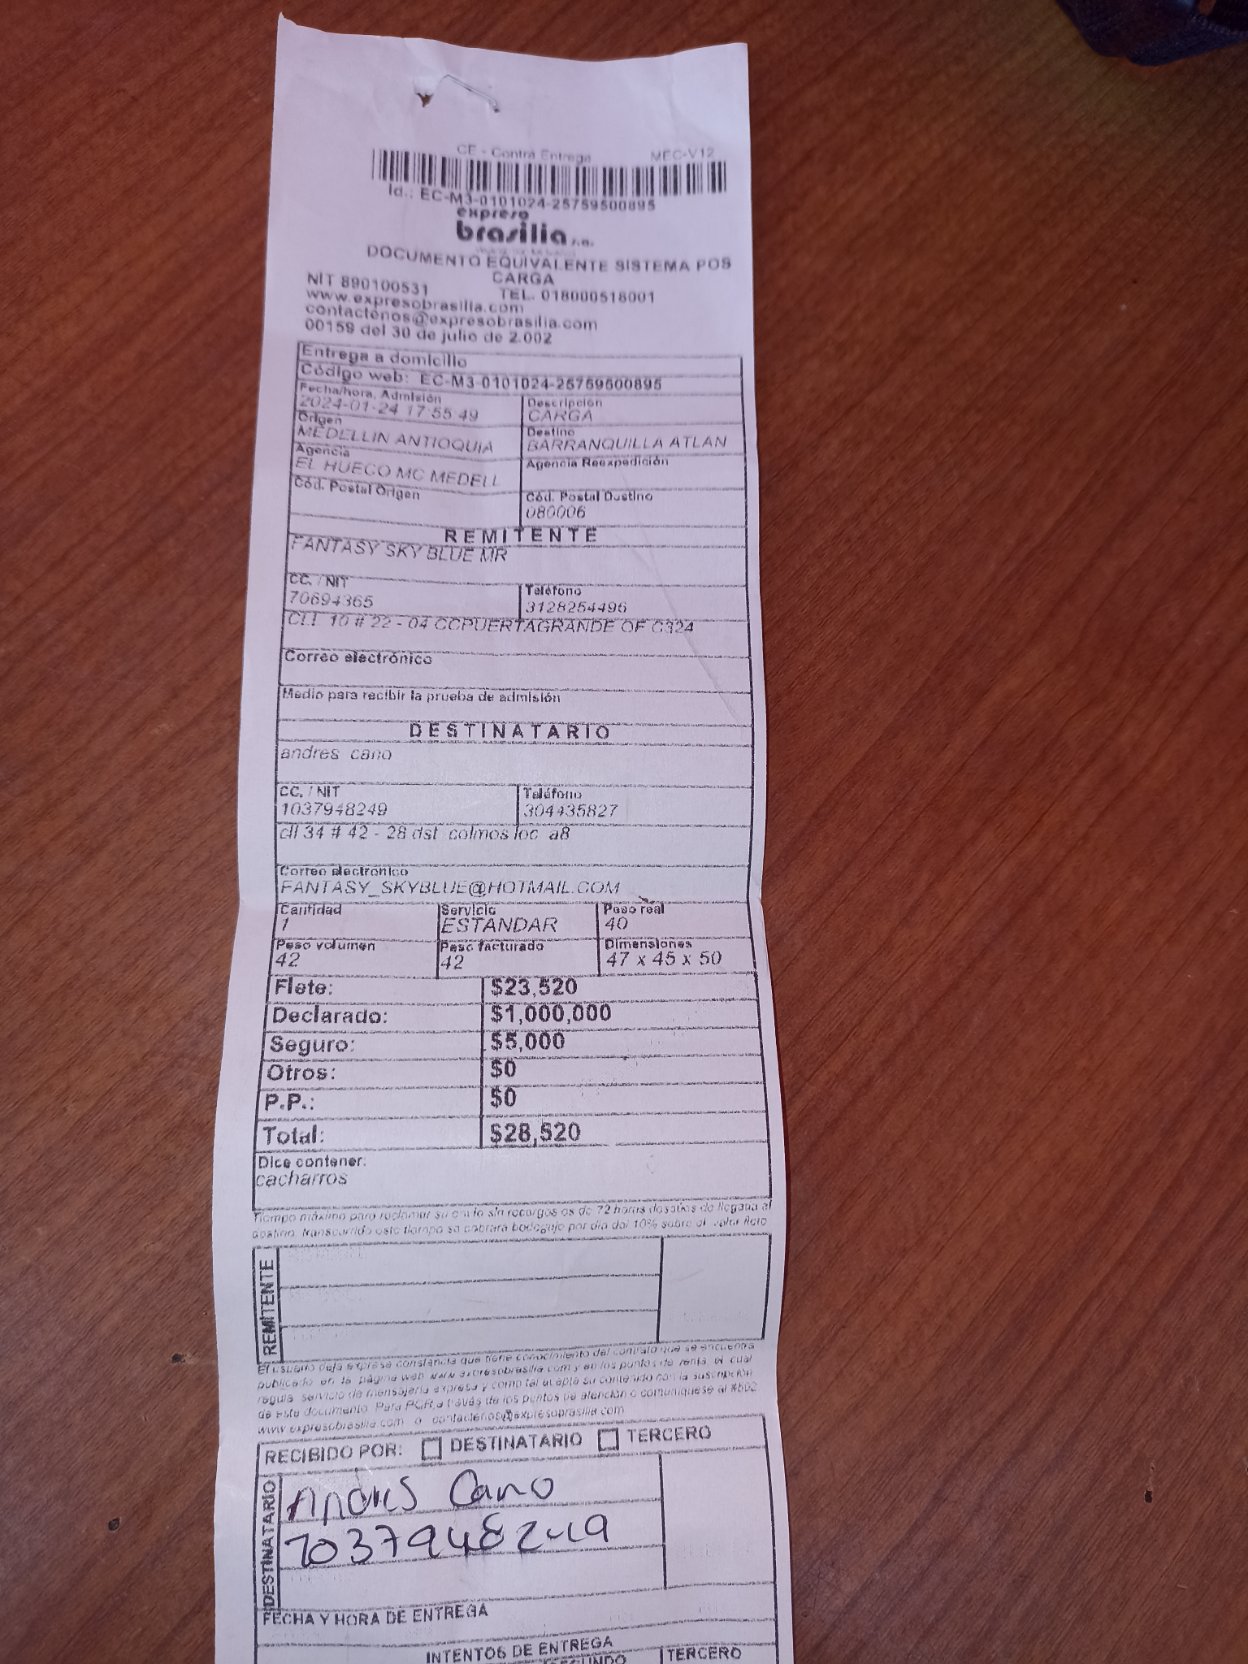 CE - Contra Entrega MEC-V12
Id.: EC-M3-0101024-25759500895
expreso
brasilia s.a.
DOCUMENTO EQUIVALENTE SISTEMA POS
CARGA
NIT 890100531 TEL. 018000518001
www.expresobrasilia.com
contactenos@expresobrasilia.com
00159 del 30 de julio de 2.002
Entrega a domicilio
Código web: EC-M3-0101024-25759500895
Fecha/hora. Admisión Descripción
2024-01-24 17:55:49 CARGA
Origen Destino
MEDELLIN ANTIOQUIA BARRANQUILLA ATLAN
Agencia Agencia Reexpedición
EL HUECO MC MEDELL
Cód. Postal Origen Cód. Postal Destino
080006
REMITENTE
FANTASY SKY BLUE MR
CC. / NIT Teléfono
70694365 3128254496
CLL 10 # 22 - 04 CCPUERTAGRANDE OF C324
Correo electrónico
Medio para recibir la prueba de admisión
DESTINATARIO
andres cano
CC. / NIT Teléfono
1037948249 304435827
cll 34 # 42 - 28 dst colmos loc a8
Correo electrónico
FANTASY_SKYBLUE@HOTMAIL.COM
Cantidad Servicio Peso real
1 ESTANDAR 40
Peso volumen Peso facturado Dimensiones
42 42 47 x 45 x 50
Flete: $23,520
Declarado: $1,000,000
Seguro: $5,000
Otros: $0
P.P.: $0
Total: $28,520
Dice contener:
cacharros
Tiempo máximo para reclamar su envío sin recargos es de 72 horas después de llegada al
destino, transcurrido este tiempo se cobrará bodegaje por día del 10% sobre el valor flete
REMITENTE
El usuario deja expresa constancia que tiene conocimiento del contrato que se encuentra
publicado en la página web www.expresobrasilia.com y en los puntos de venta, el cual
regula servicio de mensajería expresa y como tal acepta su contenido con la suscripción
de este documento. Para PQR a través de los puntos de atención o comuníquese al
www.expresobrasilia.com o contactenos@expresobrasilia.com
RECIBIDO POR: DESTINATARIO TERCERO
DESTINATARIO
Andres Cano
1037948249
FECHA Y HORA DE ENTREGA
INTENTOS DE ENTREGA
SEGUNDO TERCERO